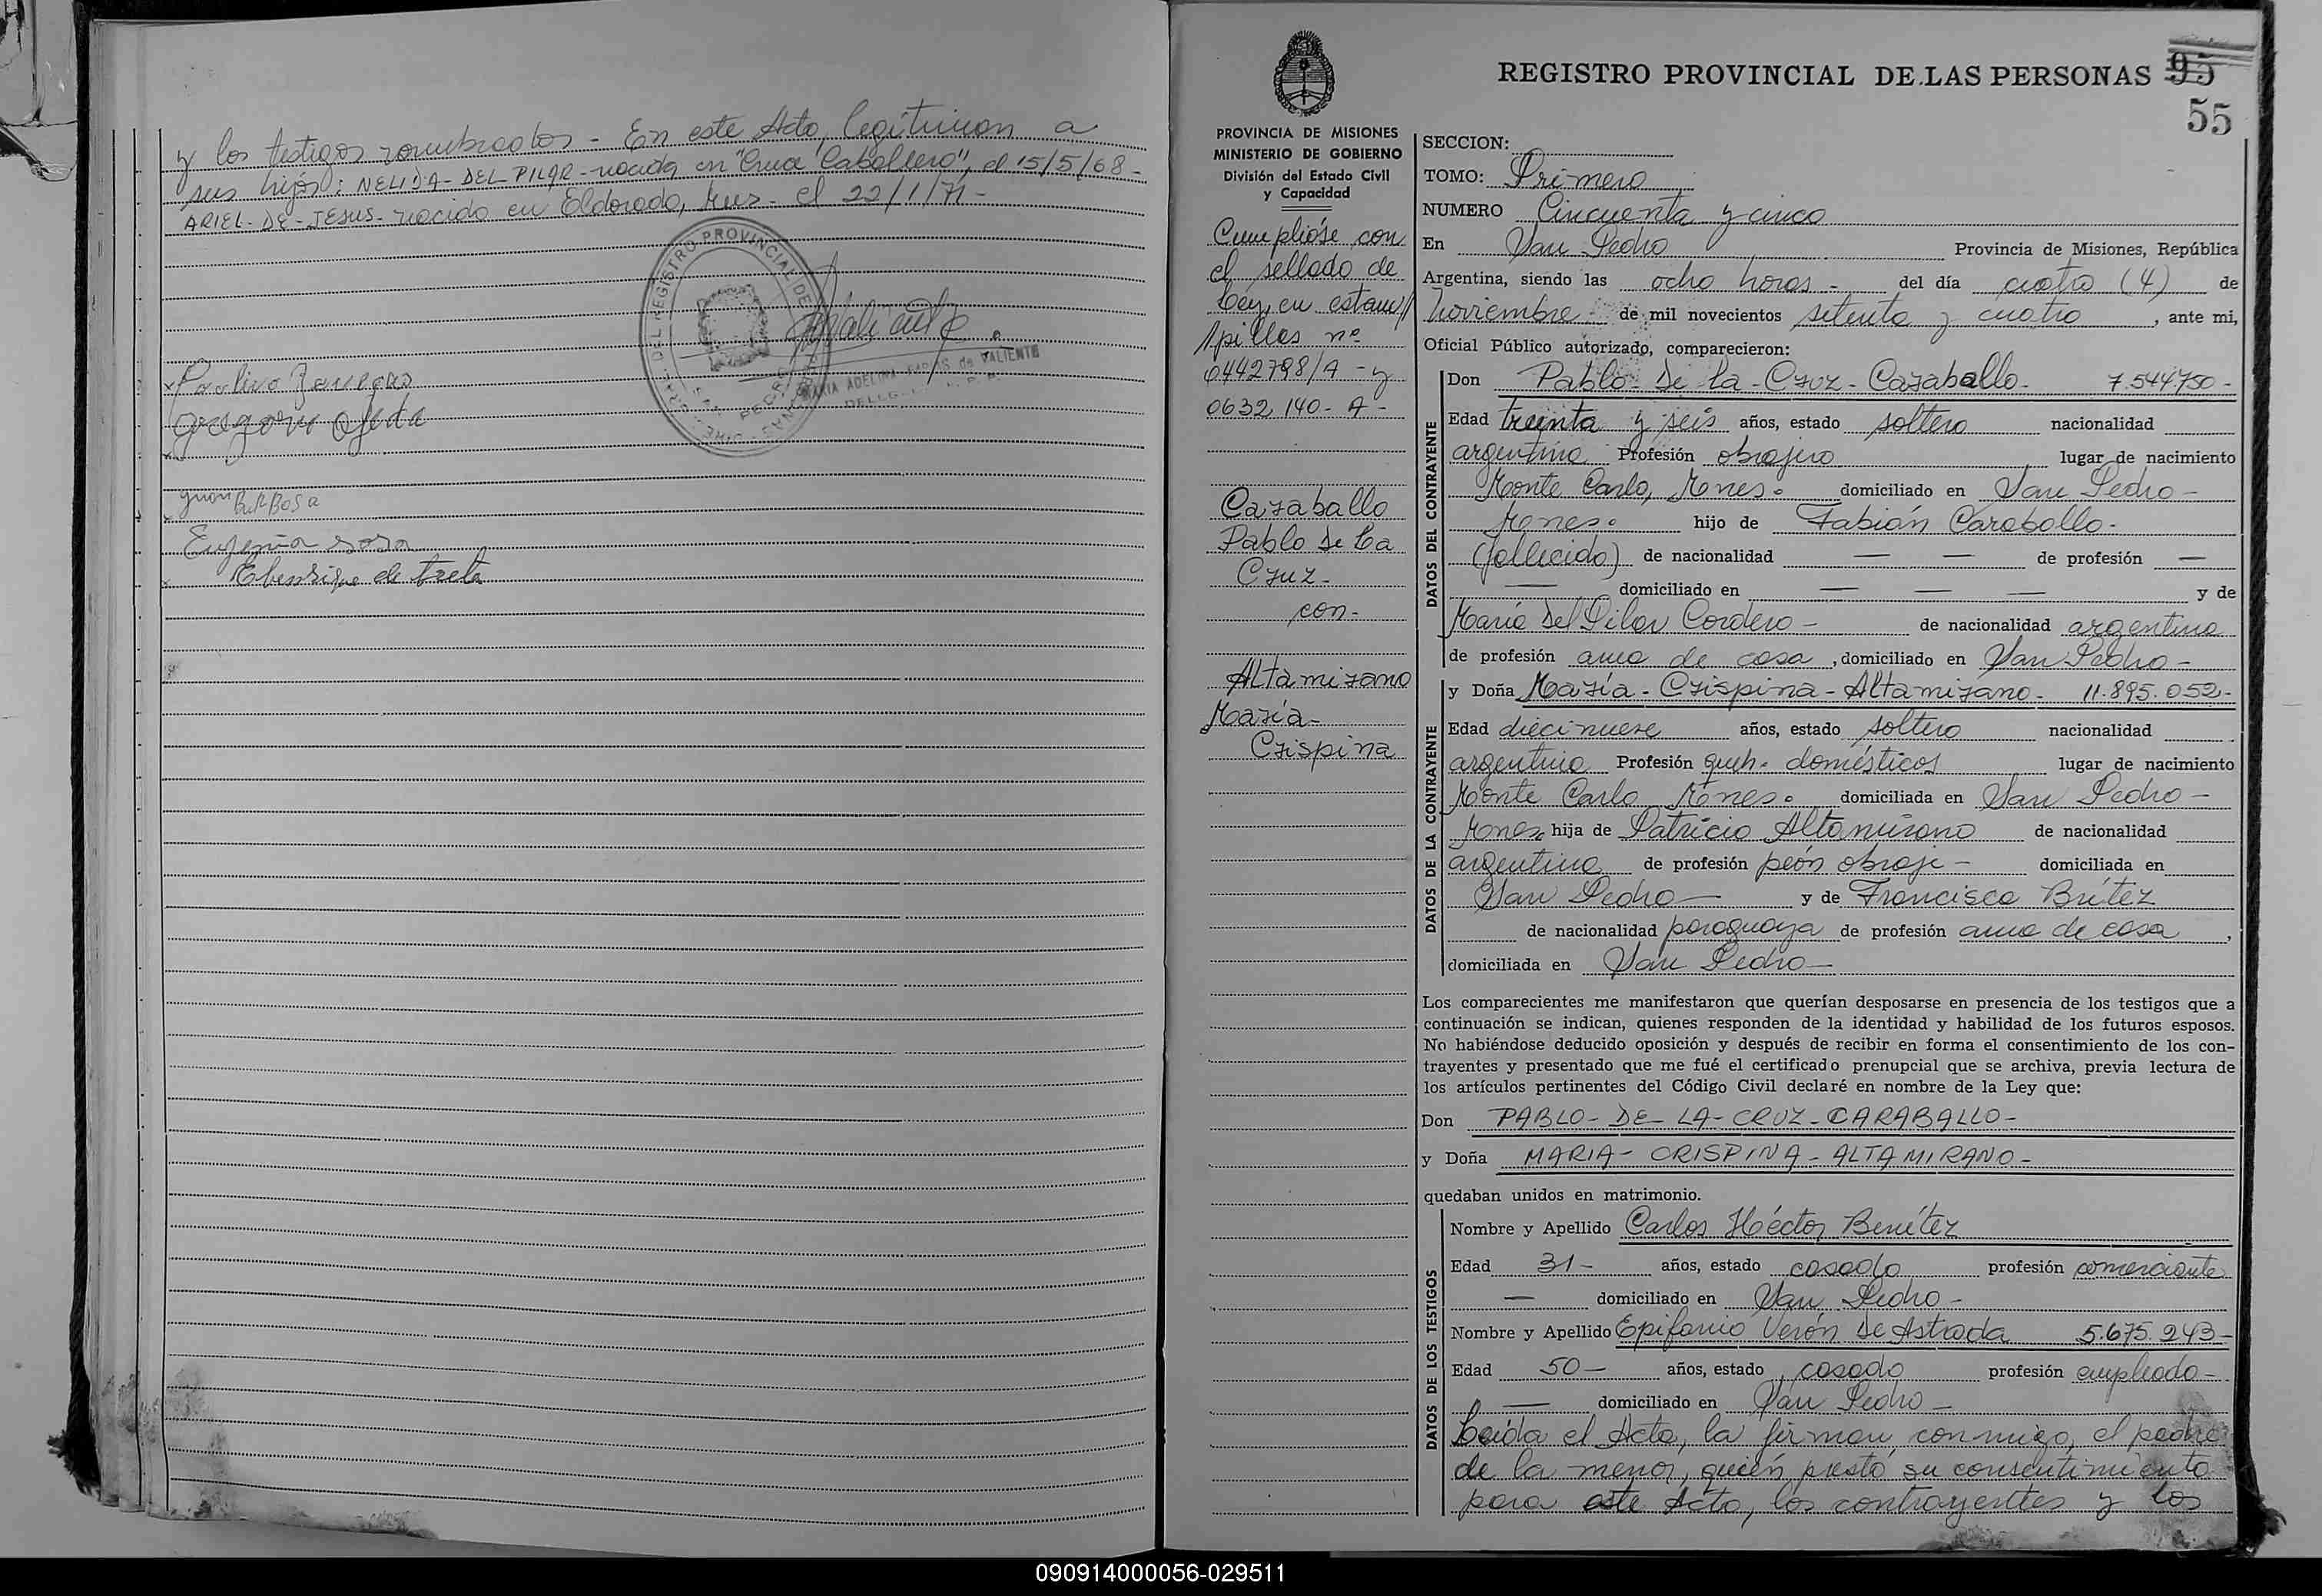 y los testigos nombrados - En este Acto, legitiman a
sus hijos: NELIDA - DEL - PILAR - nacida en "Cruce Caballero", el 15/5/68 -
ARIEL - DE - JESUS - nacido en Eldorado, Mnes - el 22/1/71 -
REGISTRO PROVINCIAL DE
MARIA ADELINA de VALIENTE
gregorio Ojeda
Juan BARBOSA
Eugenia sosa
REGISTRO PROVINCIAL DE LAS PERSONAS 95
55
PROVINCIA DE MISIONES
MINISTERIO DE GOBIERNO
División del Estado Civil
y Capacidad
Cumplióse con
el sellado de
Ley, en estam//
//pillas nº
0442798/A - y
0632.140 - A -
Caraballo
Pablo De La
Cruz -
con -
Altamirano
María -
Crispina
SECCION:
TOMO: Primero
NUMERO Cincuenta y cinco
En San Pedro Provincia de Misiones, República
Argentina, siendo las ocho horas - del día cuatro (4) de
noviembre de mil novecientos setenta y cuatro , ante mi,
Oficial Público autorizado, comparecieron:
DATOS DEL CONTRAYENTE
Don Pablo - De la - Cruz - Caraballo - 7.544750 -
Edad treinta y seis años, estado soltero nacionalidad
argentina Profesión obrajero lugar de nacimiento
Monte Carlo, Mnes. domiciliado en San Pedro -
Mnes. hijo de Fabián Caraballo -
(fallecido) de nacionalidad — — de profesión —
— domiciliado en — — — y de
María Del Pilar Cordero - de nacionalidad argentina
de profesión ama de casa , domiciliado en San Pedro -
DATOS DE LA CONTRAYENTE
y Doña María - Crispina - Altamirano - 11.895.052 -
Edad diecinueve años, estado soltera nacionalidad
argentina Profesión queh. domésticos lugar de nacimiento
Monte Carlo Mnes. domiciliada en San Pedro -
Mnes. hija de Patricio Altamirano de nacionalidad
argentina de profesión peón obraje - domiciliada en
San Pedro - y de Francisca Brítez
de nacionalidad paraguaya de profesión ama de casa ,
domiciliada en San Pedro -
Los comparecientes me manifestaron que querían desposarse en presencia de los testigos que a
continuación se indican, quienes responden de la identidad y habilidad de los futuros esposos.
No habiéndose deducido oposición y después de recibir en forma el consentimiento de los con-
trayentes y presentado que me fué el certificado prenupcial que se archiva, previa lectura de
los artículos pertinentes del Código Civil declaré en nombre de la Ley que:
Don PABLO - DE - LA - CRUZ - CARABALLO -
y Doña MARIA - CRISPINA - ALTAMIRANO -
quedaban unidos en matrimonio.
DATOS DE LOS TESTIGOS
Nombre y Apellido Carlos Héctor Benítez
Edad 31 - años, estado casado profesión comerciante
— domiciliado en San Pedro -
Nombre y Apellido Epifania Verón De Astrada 5.675.243 -
Edad 50 - años, estado casada profesión empleada -
— domiciliado en San Pedro -
Leída el Acta, la firman conmigo, el padre
de la menor, quién prestó su consentimiento
para este Acto, los contrayentes y los
090914000056-029511